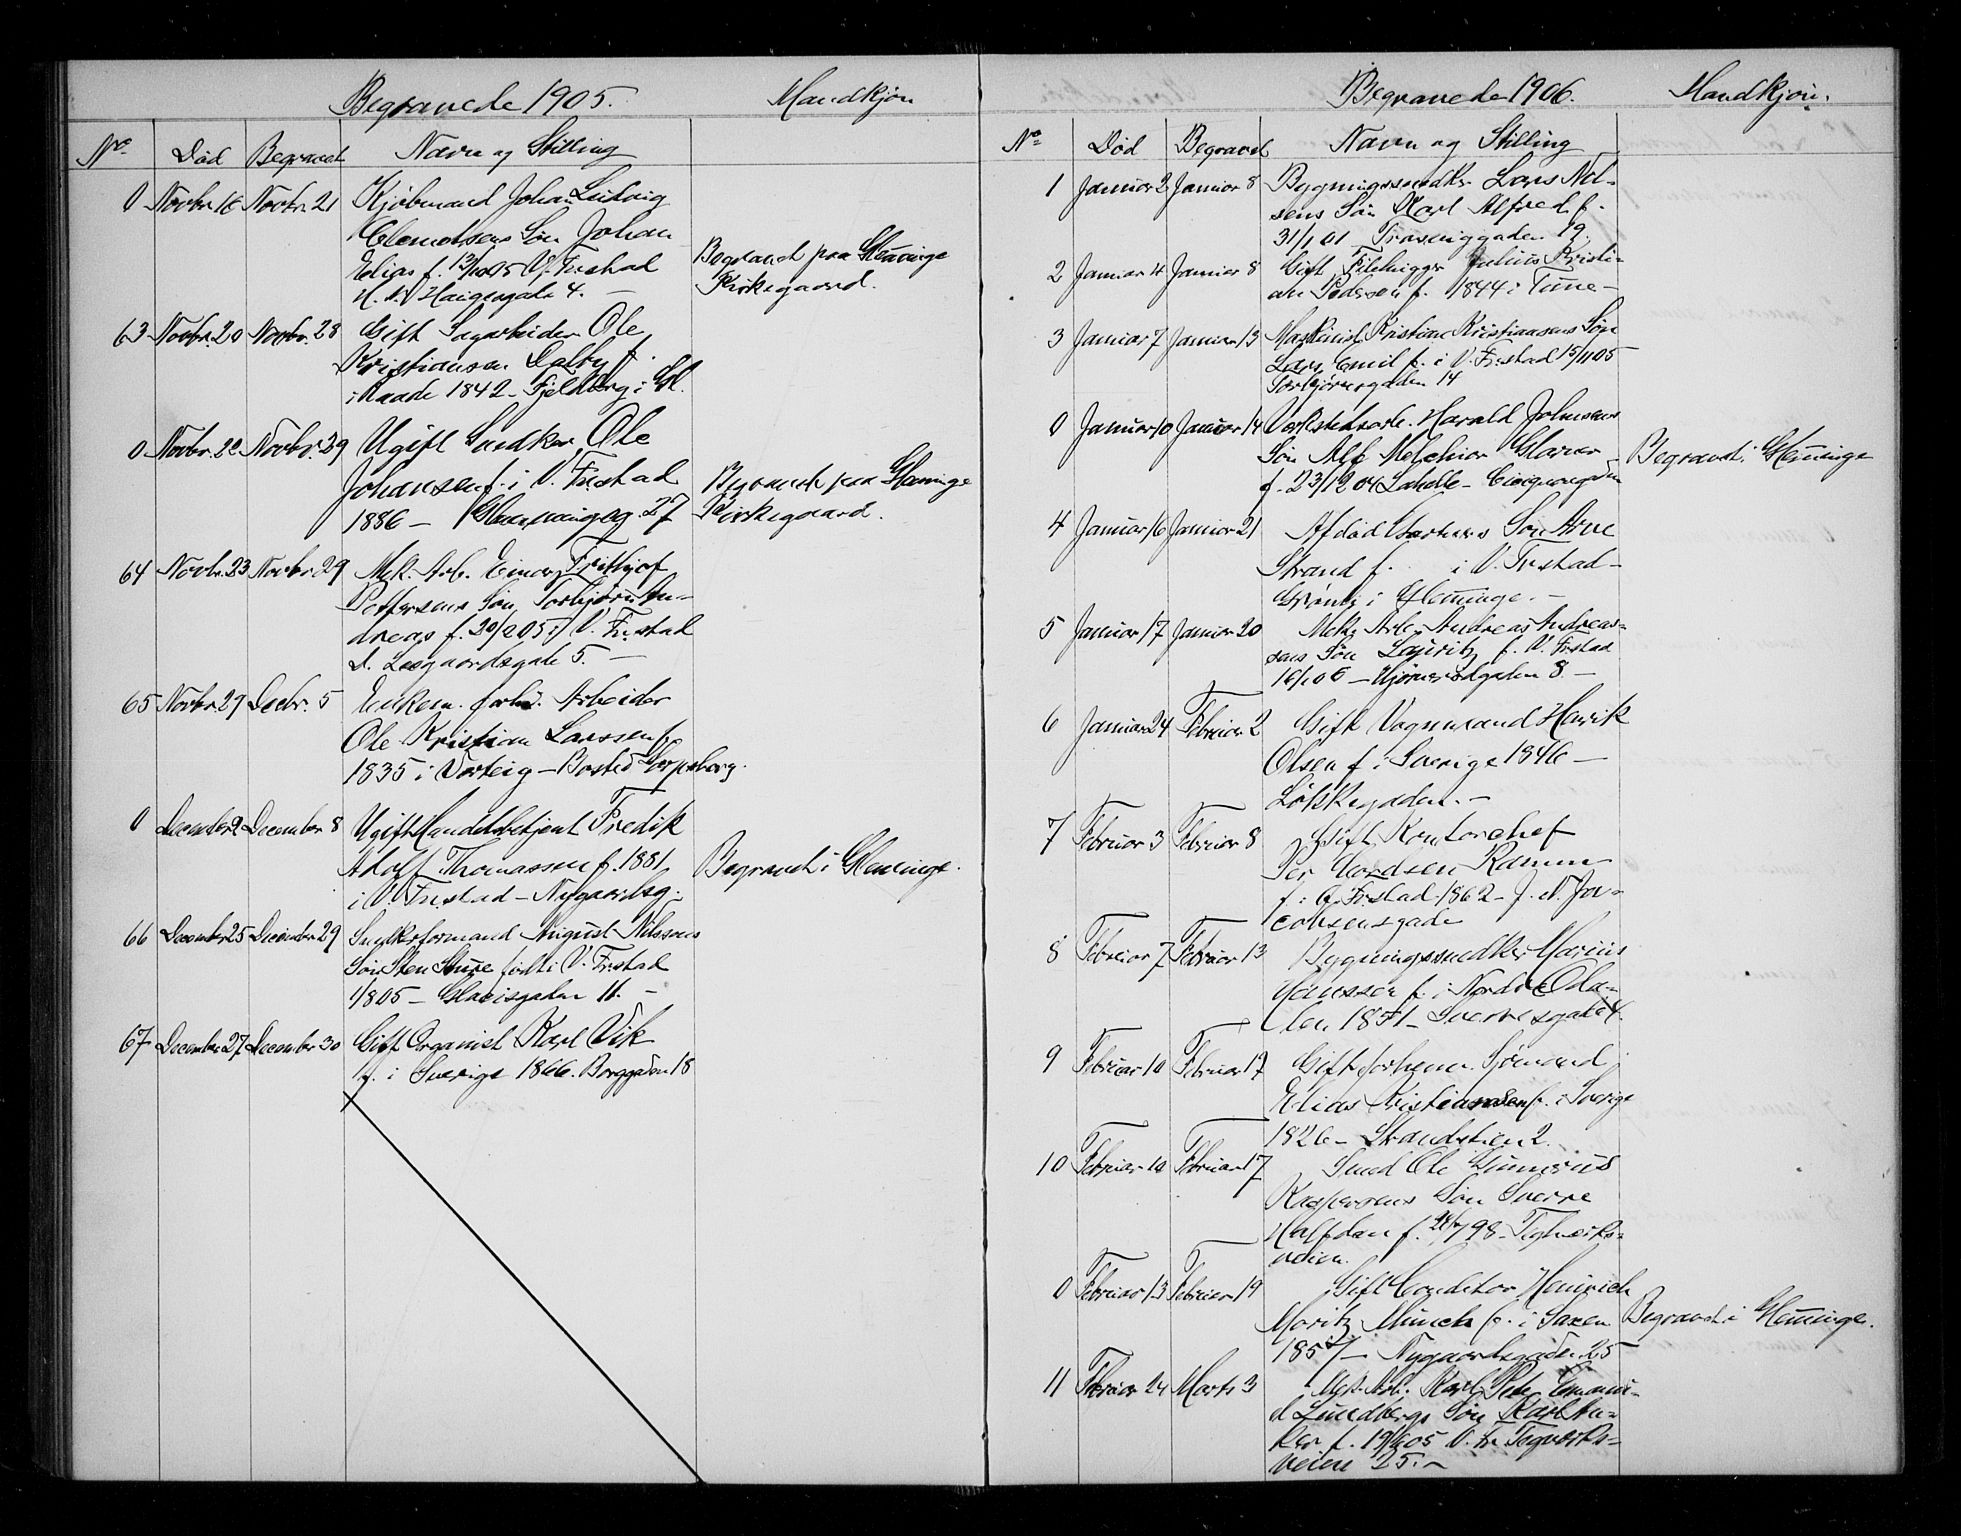 Begravede 1905. Mandkjøn
No. Død Begravet Navn og Stilling
0 Novbr. 16 Novbr. 21 Kjøbmand Johan Ludvig
Clemetsens Søn Johan
Elias f. 13/10 05 V. Frstad
H. N. Haugesgade 4. —
Begravet paa Glemminge
Kirkegaard.
63 Novbr. 20 Novbr. 28 Gift Sagarbeider Ole
Kristiansen Dalby f.
i Raade 1842 - Fjeldberg i Gl.
0 Novbr. 22 Novbr. 29 Ugift Snedker Ole
Johansen f. i V. Frstad
1886 — Glemmingeg. 27
Begravet paa Glemminge
Kirkegaard.
64 Novbr. 23 Novbr. 29 Mek. Arb. Einar Frithjof
Pettersens Søn Torbjørn An-
dreas f. 20/2 05 i V. Frstad
d. Lesgaardsgade 5. —
65 Novbr. 29 Decbr. 5 Enkem. forhv. Arbeider
Ole Kristian Larssen f.
1835 i Varteig - Bosted Sarpsborg.
0 December 2 December 8 Ugift Handelsbetjent Fredrik
Adolf Thomassen f. 1881
i V. Frstad - Nygaardsg.
Begravet i Glemminge.
66 December 25 December 29 Snedkerformand August Nilssens
Søn Sten Sture født i V. Frstad
1/8 05 - Glacisgaden 11. —
67 December 27 December 30 Gift Organist Karl Vik
f. i Sverige 1866. Borggaden 18
Begravede 1906. Mandkjøn.
No. Død Begravet Navn og Stilling
1 Januar 2 Januar 8 Bygningssnedker Lars Nil-
sens Søn Karl Alfred f.
31/1 01 Trosviggaden 19.
2 Januar 4 Januar 8 Gift Filehugger Julius Kristi-
an Pedersen f. 1844 i Tune -
3 Januar 7 Januar 13 Maskinist Kristian Kristiansens Søn
Lars Emil f. i V. Frstad 15/11 05
Torbjørnsgaden 14
0 Januar 10 Januar 14 Værkstedsarb. Harald Johnsens
Søn Alf Melchior Glarer
f. 23/12 04 Labelle - Cicignongaden
Begravet i Glemminge
4 Januar 16 Januar 21 Afdød Søn Arne
Strand f. i V. Frstad -
Grønli i Glemminge. —
5 Januar 17 Januar 20 Mek. Arb. Andreas Andreas-
sens Søn Lauritz f. V. Frstad
16/1 06 — Hjørnerødgaden 8. —
6 Januar 24 Februar 2 Gift Vognmand Henrik
Olsen f. i Sverige 1846 —
Löhkegaden. —
7 Februar 3 Februar 8 Gift Kontorchef
Per Nordsen Ramm
f. i G. Frstad 1862 - J. N. Ja-
cobsensgade
8 Februar 7 Februar 13 Bygningssnedker Marius
Hanssen f. i Nordre Oda-
len 1871 - Sverresgade 4.
9 Februar 10 Februar 17 Gift forhenv. Sømand
Elias Kristiansen f. i Sverige
1826 - Strandstien 2.
10 Februar 10 Februar 17 Smed Ole Gunnerius
Kaspersens Søn Sverre
Halfdan f. 98 - Teglværks-
veien.
0 Februar 13 Februar 19 Gift Conditor Heinrich
Moritz Münch f. i Saxen
1857 — Nygaardsgaden 25
Begravet i Glemminge.
11 Februar 24 Marts 3 Mek. Arb. Karl Peter Emanu-
el Lundbergs Søn Karl An-
ker f. 19/6 05 V. Fr Teglværks-
veien 25. —